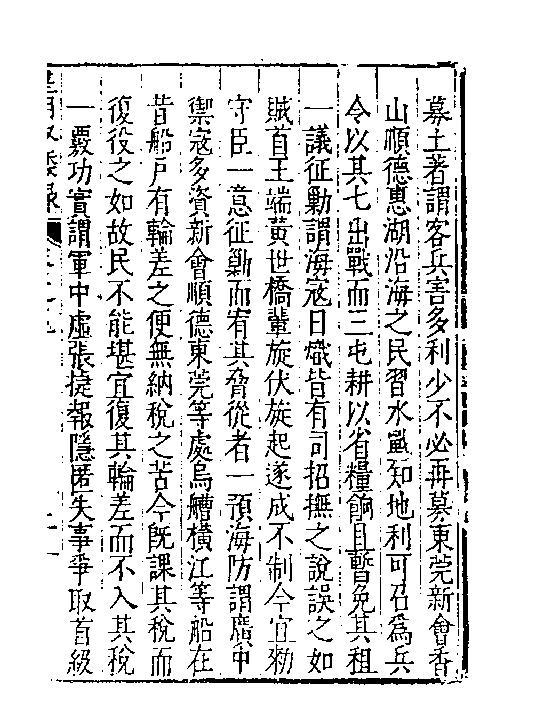 募土著謂客兵害多利少不必再募東莞新會香
山順德惠湖沿海之民習水戰知地利可召為兵
令以其七出戰而三屯耕以省糧餉且暫免其租
一議征勦謂海寇日熾皆有司招撫之說誤之如
賊首王端黃世橋輩旋伏旋起遂成不制今宜勑
守臣一意征勦而宥其脅從者一預海防謂廣中
禦寇多資新會順德東莞等處烏艚橫江等船在
昔船戶有輪差之便無納稅之苦今既課其稅而
復役之如故民不能堪宜復其輪差而不入其稅
一覈功實謂軍中虛張捷報隱匿失事爭取首級